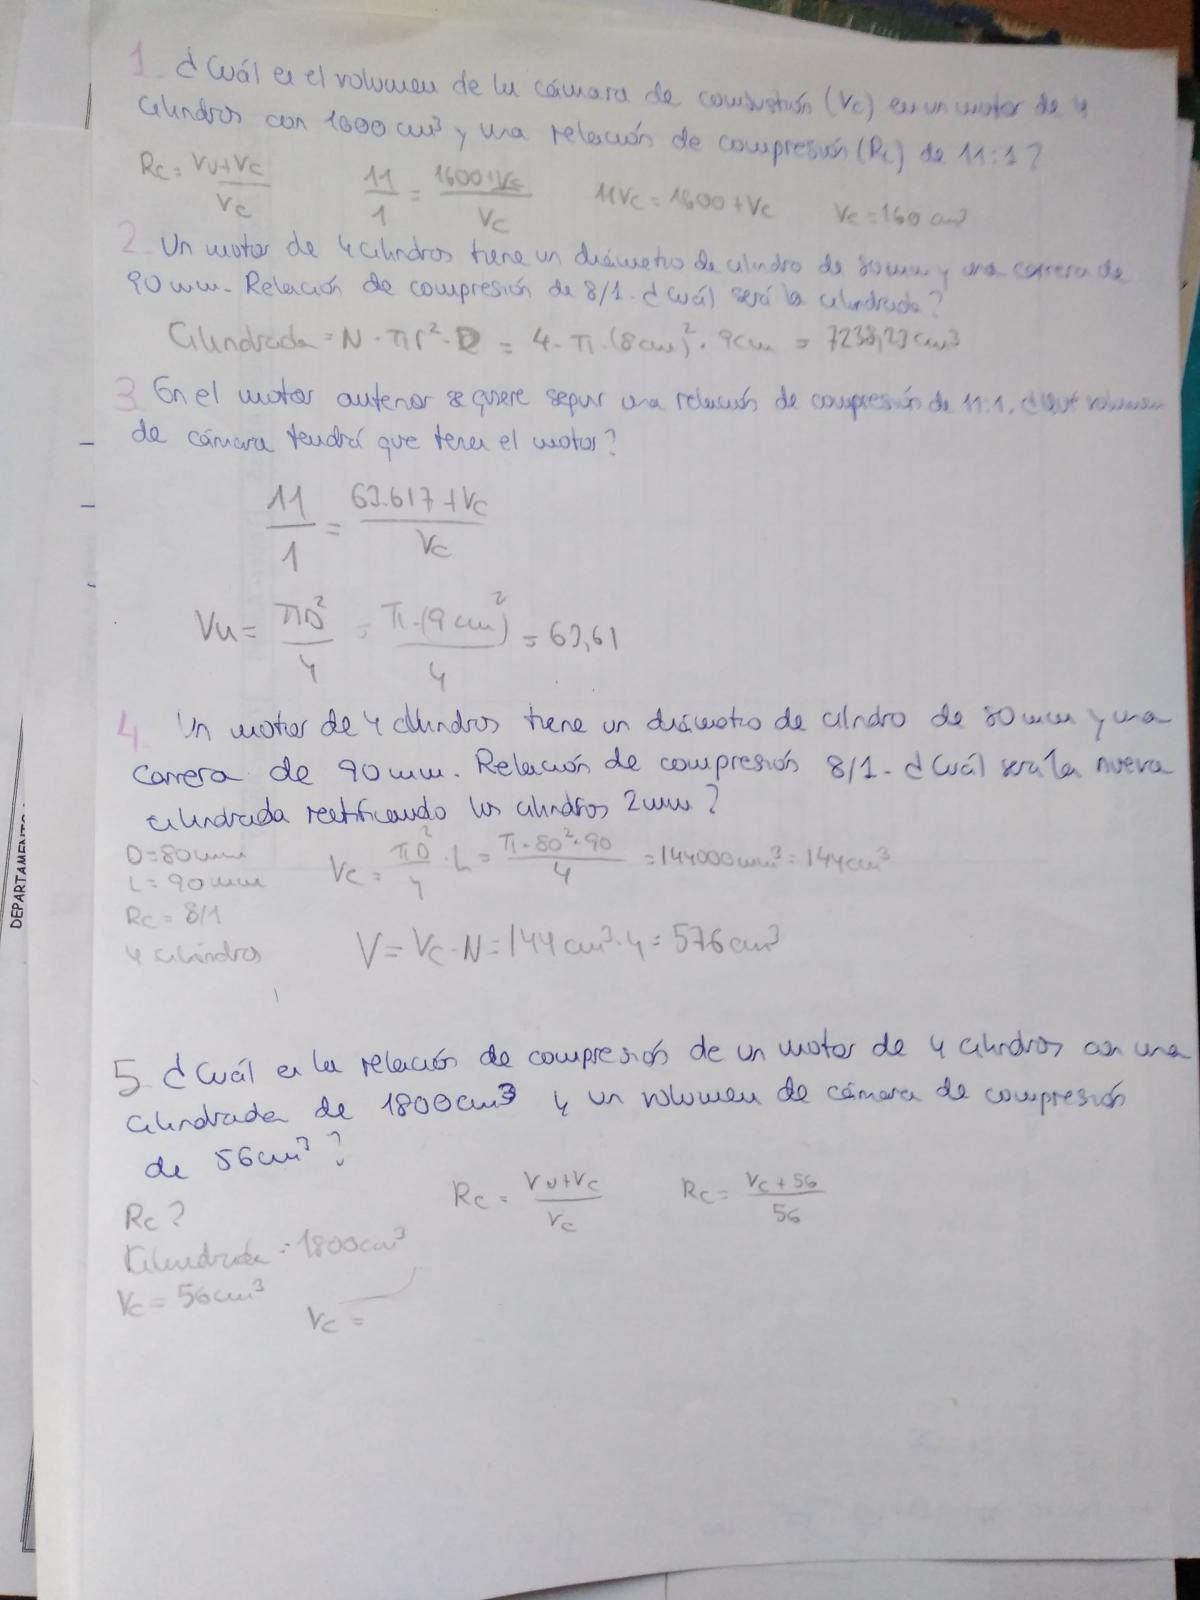 1. ¿Cuál es el volumen de la cámara de combustión (Vc) en un motor de 4
cilindros con 1600 cm³ y una relación de compresión (Rc) de 11:1?
Rc = Vu+Vc / Vc    11/1 = 1600+Vc / Vc    11Vc = 1600 + Vc    Vc = 160 cm³
2. Un motor de 4 cilindros tiene un diámetro de cilindro de 80 mm y una carrera de
90 mm. Relación de compresión de 8/1. ¿Cuál será la cilindrada?
Cilindrada = N · πr² · = 4 · π · (8cm)² · 9cm = 7238,23 cm³
3. En el motor anterior se quiere una relación de compresión de 11:1. ¿Qué volumen
de cámara tendrá que tener el motor?
11/1 = 63.617 + Vc / Vc
Vu = πD² / 4 = π·(9 cm)² / 4 = 63,61
4. Un motor de 4 cilindros tiene un diámetro de cilndro de 80 mm y una
carrera de 90 mm. Relación de compresión 8/1. ¿Cuál será la nueva
cilindrada rectificando los cilindros 2 mm?
D = 80 mm
L = 90 mm
Rc = 8/1
4 cilindros
Vc = πD² / 4 · L = π·80²·90 / 4 = 144000 mm³ = 144 cm³
V = Vc · N = 144 cm³ · 4 = 576 cm³
5. ¿Cuál es la relación de compresión de un motor de 4 cilindros con una
cilindrada de 1800 cm³ y un volumen de cámara de compresión
de 56 cm³?
Rc?
Cilindrada = 1800 cm³
Vc = 56 cm³
Vc =
Rc = Vu+Vc / Vc    Rc = Vc + 56 / 56
DEPARTAMENTO